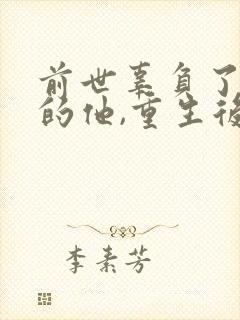 前世辜负了
的他,重生后
李素芳